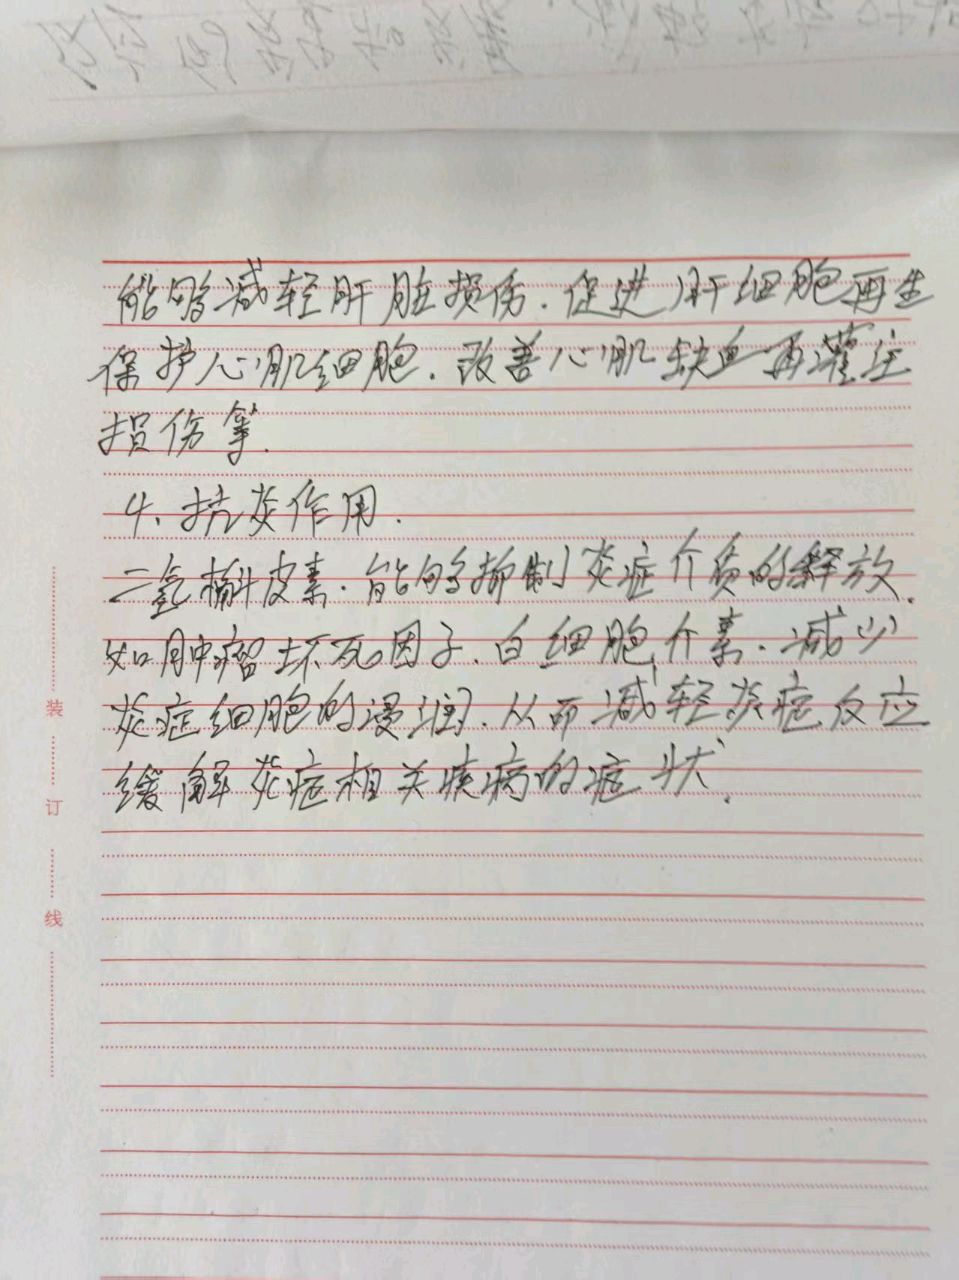 能够减轻肝脏损伤.促进肝细胞再生
保护心肌细胞.改善心肌缺血再灌注
损伤等.
4、抗炎作用.
二氢槲皮素.能够抑制炎症介质的释放.
如肿瘤坏死因子、白细胞介素.减少
炎症细胞的浸润.从而减轻炎症反应
缓解炎症相关疾病的症状.
装
订
线